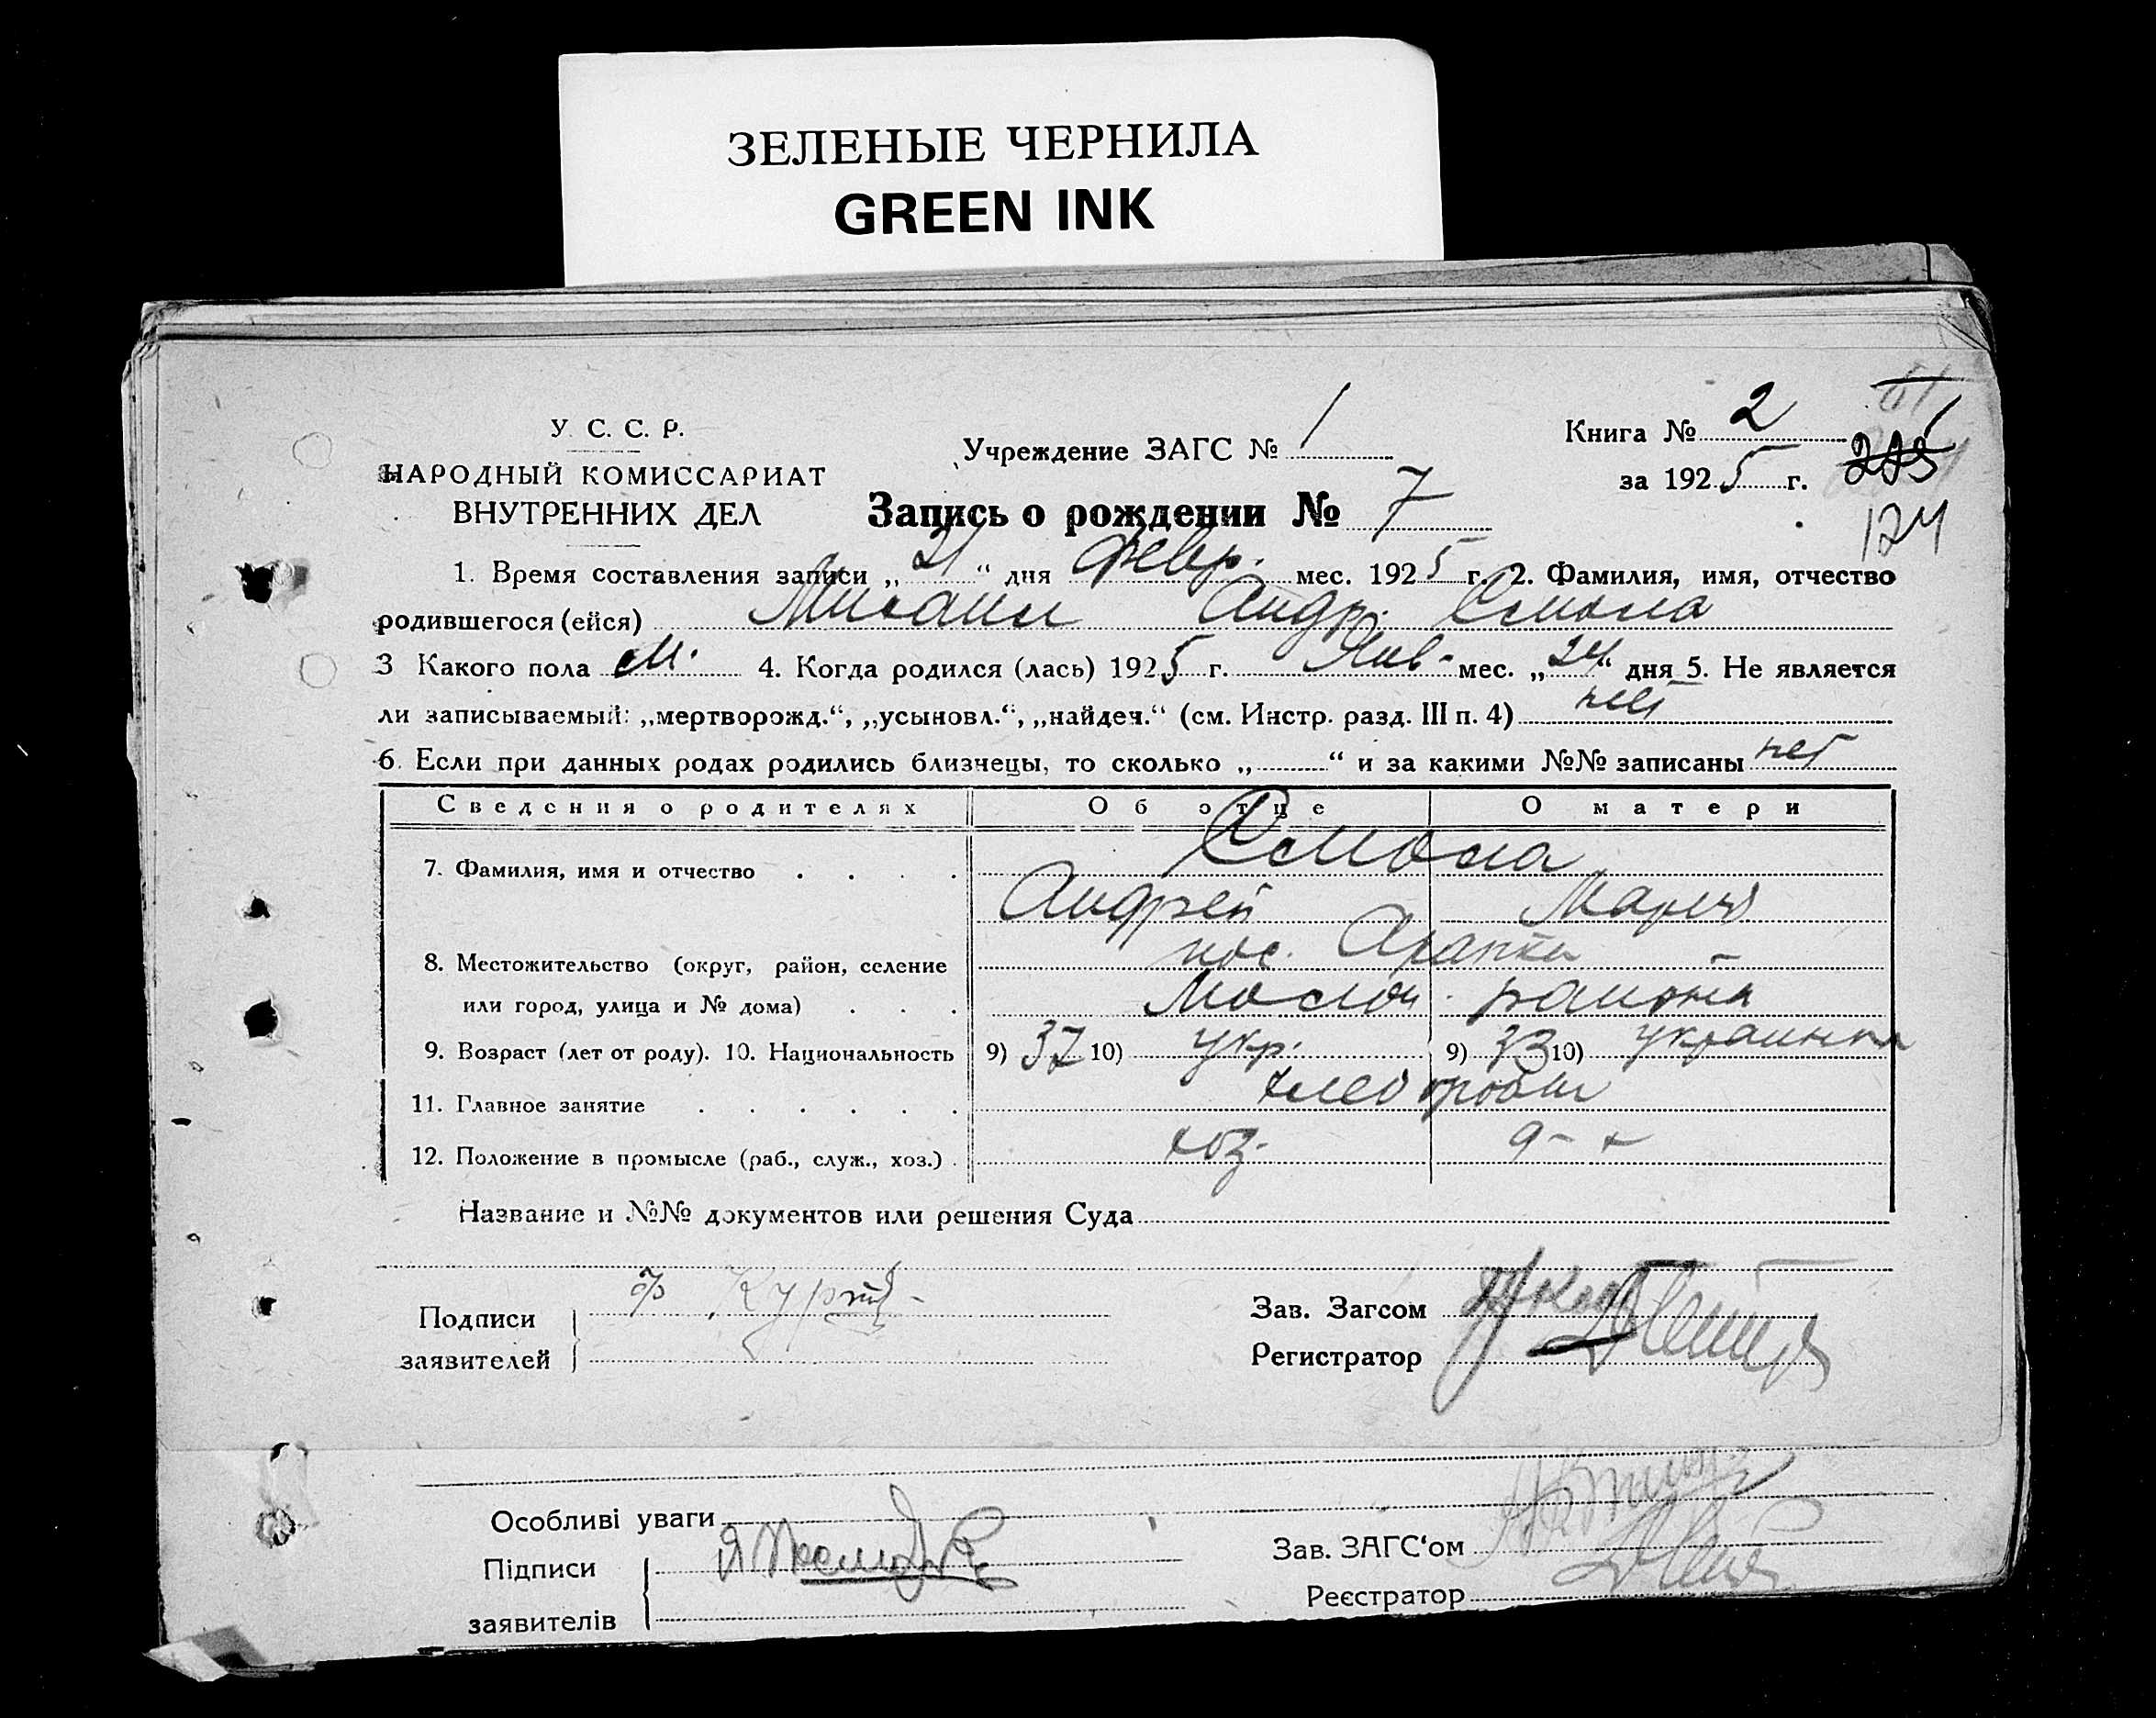 ЗЕЛЕНЫЕ ЧЕРНИЛА
GREEN INK
У. С. С. Р.
НАРОДНЫЙ КОМИССАРИАТ
ВНУТРЕННИХ ДЕЛ
Учреждение ЗАГС № 1
Книга № 2
за 1925 г.
124
Запись о рождении № 7
1. Время составления записи „21“ дня февр. мес. 1925 г. 2. Фамилия, имя, отчество
родившегося (ейся) Михаил Андр. Смола
3 Какого пола м. 4. Когда родился (лась) 1925 г. Янв. мес. „24“ дня 5. Не является
ли записываемый: „мертворожд.“, „усыновл.“, „найден.“ (см. Инстр. разд. III п. 4) нет
6. Если при данных родах родились близнецы, то сколько „ “ и за какими №№ записаны нет
Сведения о родителях Об отце О матери
7. Фамилия, имя и отчество Смола
Андрей Мария
8. Местожительство (округ, район, селение пос.
или город, улица и № дома) района
9. Возраст (лет от роду). 10. Национальность 9) 37 10) укр. 9) 33 10) украинка
11. Главное занятие хлебороб
12. Положение в промысле (раб., служ., хоз.) хоз.
Название и №№ документов или решения Суда
Подписи
заявителей
Зав. Загсом
Регистратор
Особливі уваги
Підписи
заявителів
Зав. ЗАГС‘ом
Реєстратор